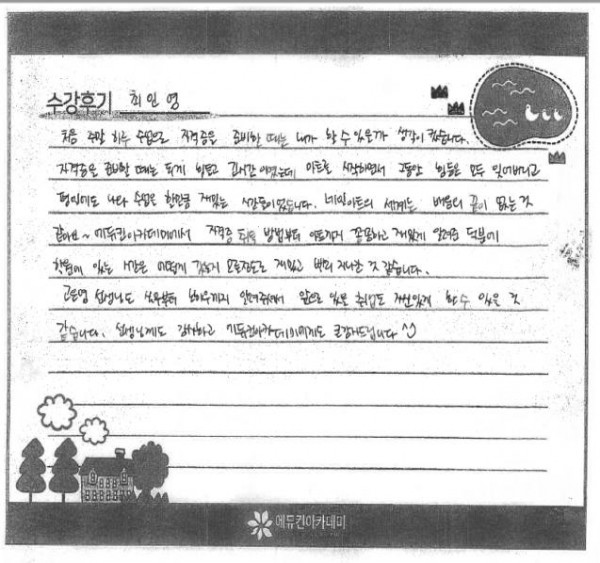 수강후기 최인영
처음 주말 하루 수업으로 자격증을 준비할 때는 내가 할 수 있을까 생각이 컸습니다.
자격증을 준비할 때는 되게 힘들고 긴시간이었는데 아트로 시작하면서 그동안 힘듦은 모두 잊어버리고
평일에도 나와 수업을 할만큼 재밌는 시간들이었습니다. 네일아트의 세계는 배움의 끝이 없는 것
같아요~ 에듀킨아카데미에서 자격증 취득 방법부터 아트까지 꼼꼼하고 재밌게 알려준 덕분에
학원에 있는 시간은 어떻게 갔는지 모를정도로 재밌고 빨리 지나간 것 같습니다.
고은영 선생님도 하나부터 열까지 알려주셔서 앞으로 있을 취업도 자신있게 할 수 있을 것
같습니다. 선생님께도 감사하고 에듀킨아카데미에게도 큰감사드립니다
에듀킨아카데미